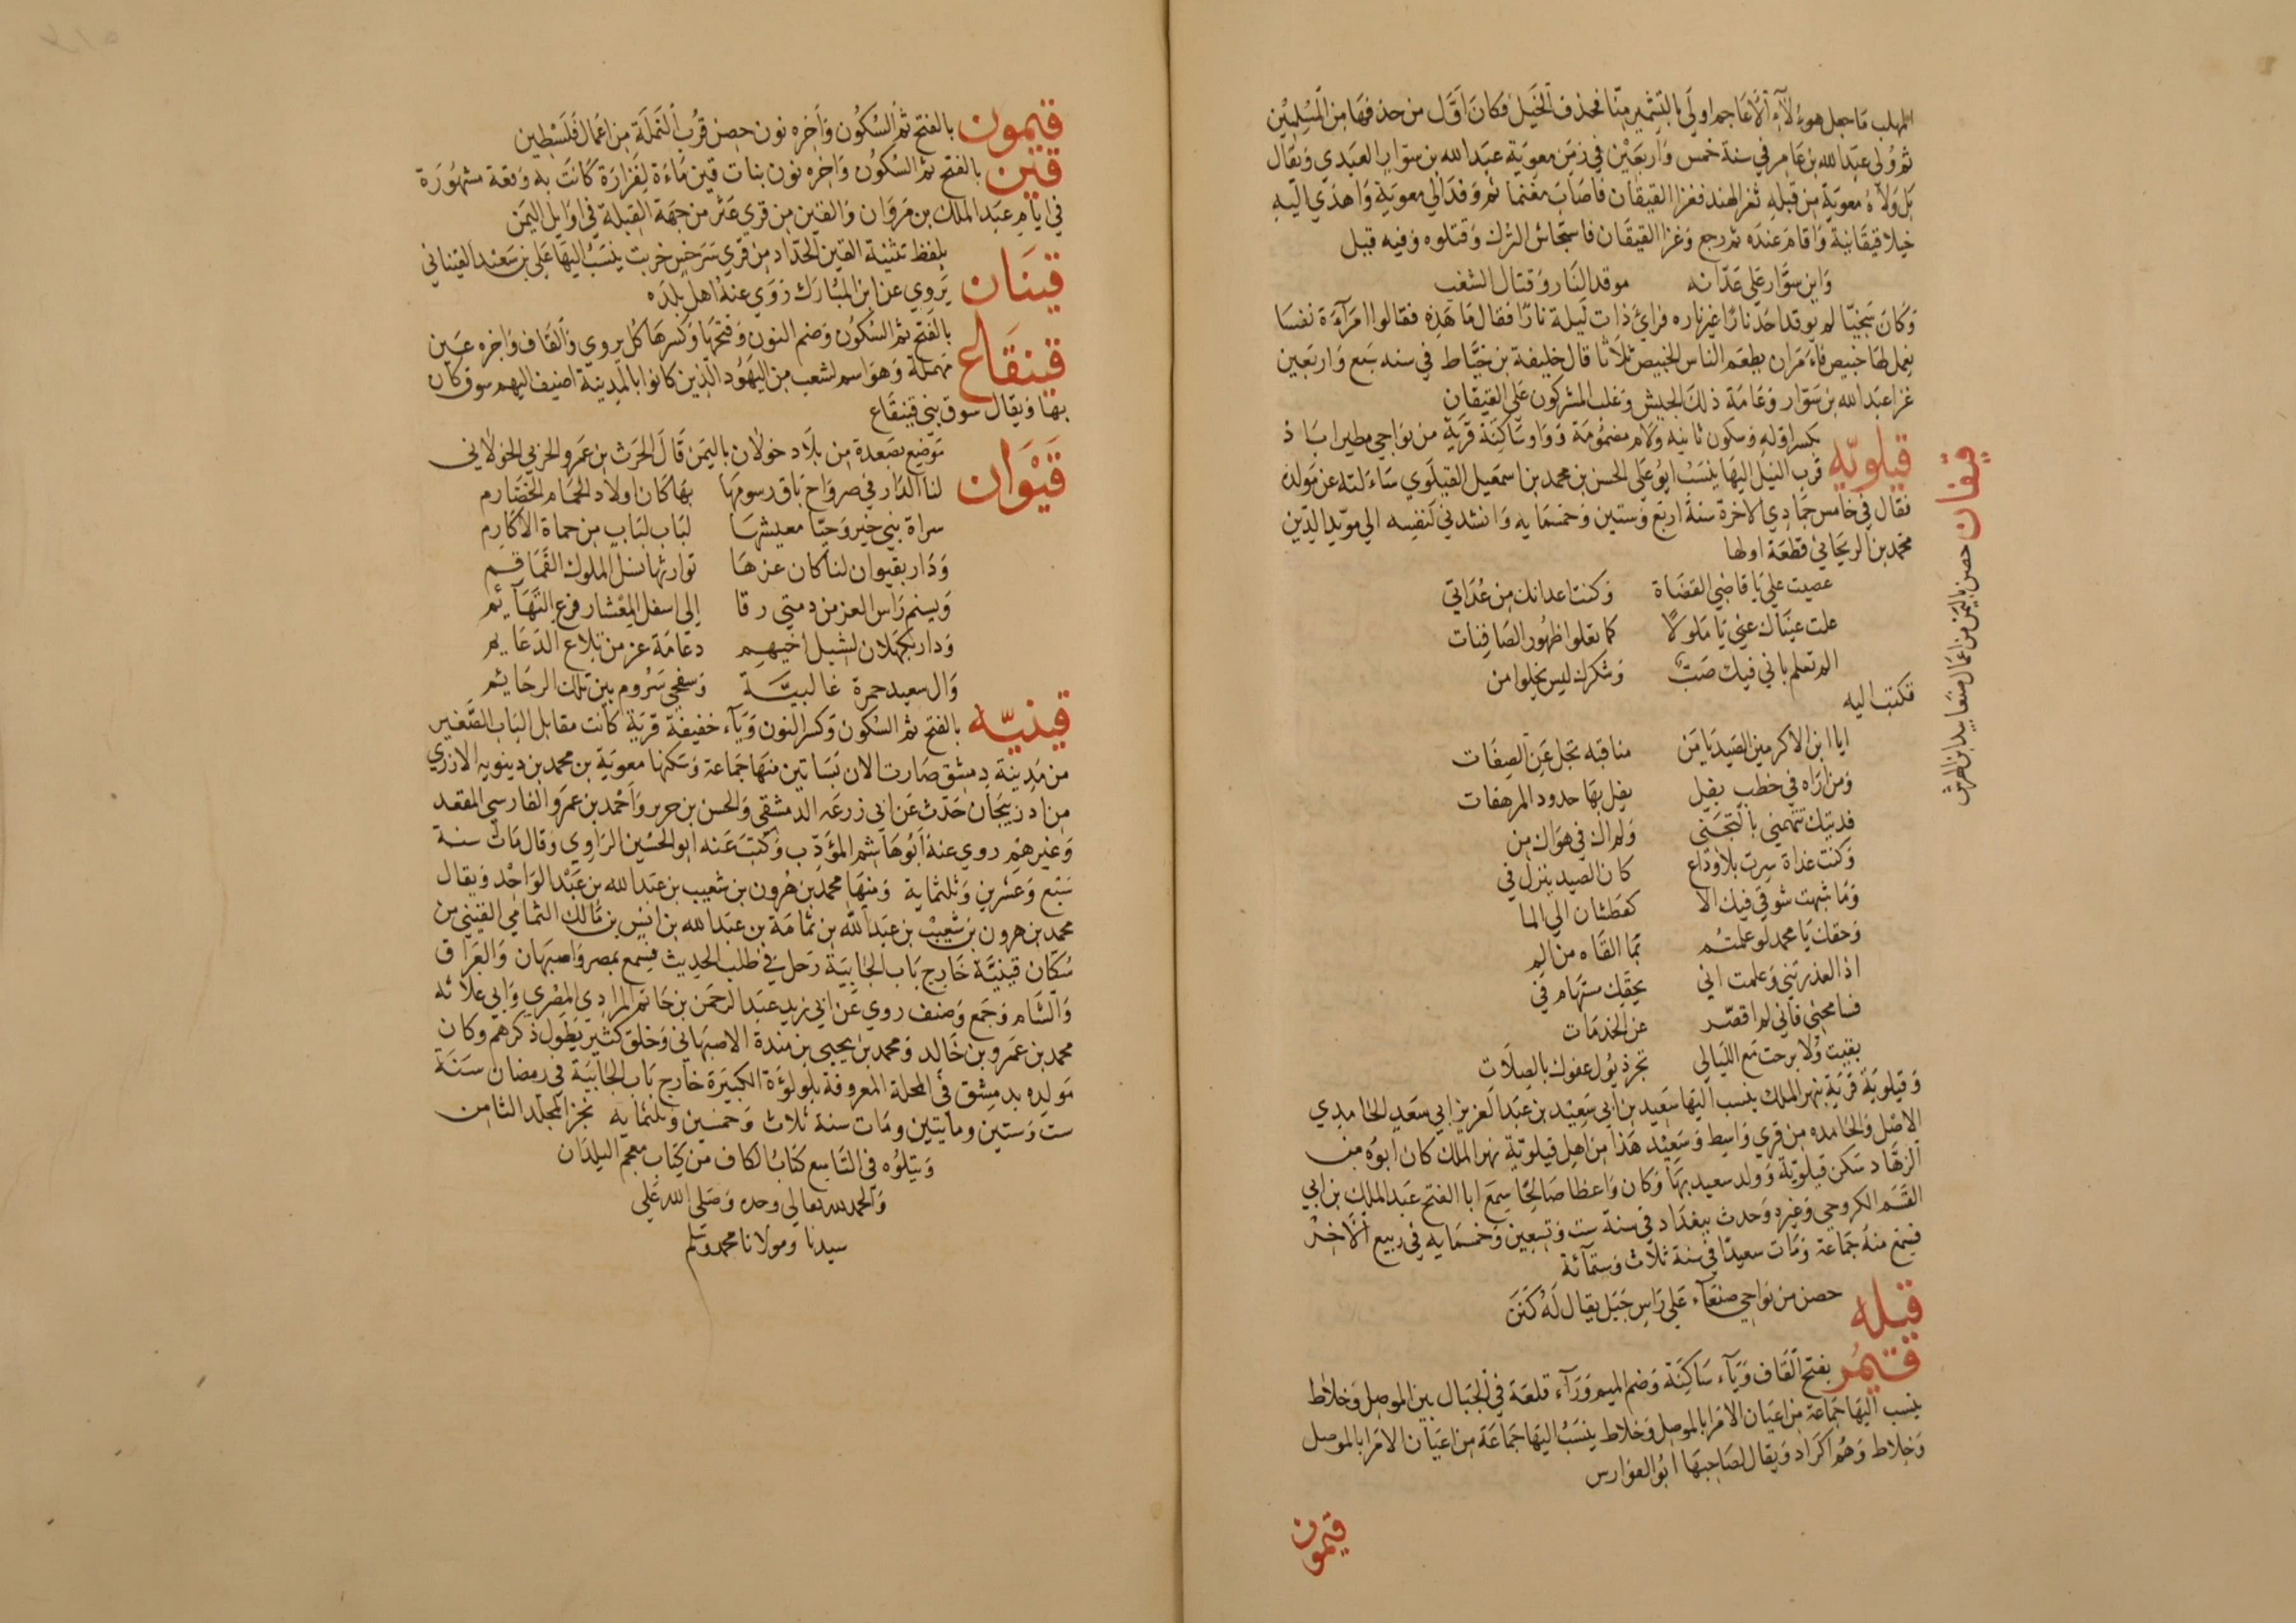 المهلب ما جعل هوءلآء الأعاجم اولي بالتشمير منّا فحذف الخيل فكان اوّل من حذفها من المسلمين
ثم ولي عبد الله بن عامر في سنة خمس واربعين في زمن معوية عبد الله بن سوار العبدي ويقال
بل ولاه معوية من قبله ثغر الهند فغزا القيقان فاصاب مغنما ثم وفد الي معوية واهدي اليه
خيلا قيقانية واقام عنده ثم رجع وغزا القيقان فاستجاش الترك وقتلوه وفيه قيل
وابن سوار علي عدّاته موقد النار وقتال الشغب
وكان سخيّا لم يوقد احد نارا غير ناره فرائ ذات ليلة نارا فقال ما هذه فقالوا امرآءة نفسا
يعمل لها خبيص فامر ان يطعم الناس الخبيص ثلاثا قال خليفة بن خياط في سنه سبع واربعين
غزا عبد الله بن سوار وعامة ذلك الجيش وغلب المشركون علي القيقان
قيلويّه بكسر اوله وسكون ثانيه ولام مضمومة وواو ساكنة قرية من نواحي مطيراباذ
قرب النيل اليها ينسب ابو علي الحسن بن محمد بن اسمعيل القيلوي سآءلته عن مولده
فقال في خامس جمادي الاخرة سنة اربع وستين وخمسمايه وانشدني لنفسه الي مويد الدين
محمد بن الريحاني قطعة اولها
عصيت علي يا قاضي القضاة وكنت اعدانك من عداتي
علت عيناك عني يا ملولا كما يعلوا ظهور الصافنات
الم تعلم باني فيك صب وشكرك ليس يخلوا من
فكتب اليه
ايا ابن الاكرمين الصيد يا من مناقبه تجل عن الصفات
ومن اراه في خطب يفيل يفل بها حدود المرهفات
فديتك تتهمني بالتجني ولم اك في هواك من
وكنت غداة سرت بلا وداع كان الصيد ينزل في
وما شبهت شوقي فيك الا كعطشان الي الما
وحقك يا محمد لو علمتم بما القاه من الم
اذا لعذرتني وعلمت اني بحقك مستهام في
فسامحني فاني لم اقصر عن الخدمات
بقيت ولا برحت مع الليالي تجر ذيول عفوك بالصلات
وقيلوية قرية بنهر الملك ينسب اليها سعيد بن ابي سعيد بن عبد العزيز ابي سعيد الخامدي
الاصل والخامده من قري واسط وسعيد هذا من اهل قيلويّة نهر الملك كان ابوه من
الزهاد سكن قيلويّة وولد سعيد بها وكان واعظا صالحا سمع ابا الفتح عبد الملك بن ابي
القسم الكروجي وغيره وحدث ببغداد في سنة ست وتسعين وخمسمايه في ربيع الاخر
فسمع منه جماعة ومات سعيد في سنة ثلاث وستمآئة
قيله حصن من نواحي صنعآء علي راس جبل يقال له كنن
قيمر بفتح القاف ويآء ساكنة وضم الميم ورآء قلعة في الجبال بين الموصل وخلاط
ينسب اليها جماعة من اعيان الامرا بالموصل وخلاط ينسب اليها جماعة من اعيان الامرا بالموصل
وخلاط وهم اكراد ويقال لصاحبها ابو الفوارس
قيمون
قيفان حصن باليمن من اعمال صنعا بيد ابن الهرش
قيمون بالفتح ثم السكون واخره نون حصن قرب الرملة من اعمال فلسطين
قين بالفتح ثم السكون واخره نون بنات قين ماءة لفزارة كانت به وقعة مشهورة
في ايام عبد الملك بن مروان والقين من قري عثر من جهة القبلة في اوايل اليمن
قينان بلفظ تثنية القين الحداد من قري سرخس خربت ينسب اليها علي بن سعيد القيناني
يروي عن ابن المبارك روي عنه اهل بلده
قينقاع بالفتح ثم السكون وضم النون وفتحها وكسرها كل يروي والقاف واخره عين
مهملة وهو اسم لشعب من اليهود الذين كانوا بالمدينة اضيف اليهم سوق كان
بها ويقال سوق بني قينقاع
قيوان موضع بصعدة من بلاد خولان باليمن قال الحرث بن عمرو الحزبي الخولاني
لنا الدار في صرواح باق رسومها بها كان اولاد الحمام الخضارم
سراة بني خير وحيّا معيشها لباب لباب من حماة الاكارم
ودار بقيوان لنا كان عزها توارثها نسل الملوك القماقم
ويسنم راس العز من دمتي رقا الي اسفل المعشار فرع التهآئم
ودار بكهلان لشبل اخيهم دعامة عز من تلاع الدعايم
وال سعيد حمرة غالبيّة وسفحي شروم بين تلك الرجايم
قينيّه بالفتح ثم السكون وكسر النون ويآء خفيفة قرية كانت مقابل الباب الصغير
من مدينة دمشق صارت الان بساتين منها جماعة وسكنها معوية بن محمد بن دينويه الازدي
من اذربيجان حدث عن ابي زرعه الدمشقي والحسن بن جرير واحمد بن عمرو الفارسي المقعد
وغيرهم روي عنه ابو هاشم المؤدب وكتب عنه ابو الحسين الرازي وقال مات سنة
سبع وعشرين وثلثماية ومنها محمد بن هرون بن شعيب بن عبد الله بن عبد الواحد ويقال
محمد بن هرون بن شعيب بن عبد الله بن ثمامة بن عبد الله بن انيس بن مالك الثمامي القينيني من
سكان قينيّة خارج باب الجابية رحل في طلب الحديث فسمع بمصر واصبهان والعراق
والشام وجمع وصنف روي عن ابي زيد عبد الرحمن بن حاتم المرادي المصري وابي علاثه
محمد بن عمرو بن خالد ومحمد بن يحيي بن مندة الاصبهاني وخلق كثير يطول ذكرهم وكان
مولده بدمشق في المحلة المعروفة بلولوءة الكبيرة خارج باب الجابية في رمضان سنة
ست وستين ومأيتين ومات سنة ثلاث وخمسين وثلثمايه نجز المجلد الثامن
ويتلوه في التاسع كتاب الكاف من كتاب معجم البلدان
والحمد لله تعالي وحده وصلي الله علي
سيدنا ومولانا محمد وسلم